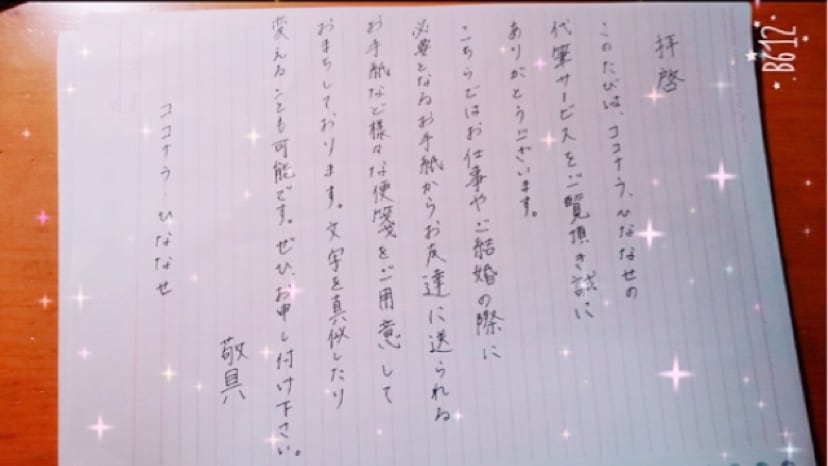 拝啓
このたびは、ココナラ、ひななせの
代筆サービスをご覧頂き誠に
ありがとうございます。
こちらではお仕事やご結婚の際に
必要となるお手紙からお友達に送られる
お手紙など様々な便箋をご用意して
おまちしております。文字を真似したり
変えることも可能です。ぜひ、お申し付け下さい。
敬具
ココナラ・ひななせ
B612